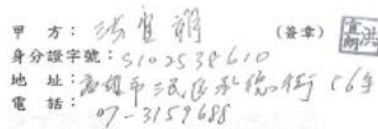 甲 方：洪宜期 (簽章) 宜期洪
身分證字號：S102538610
地 址：高雄市三民區承德街 56號
電 話：07-3159688